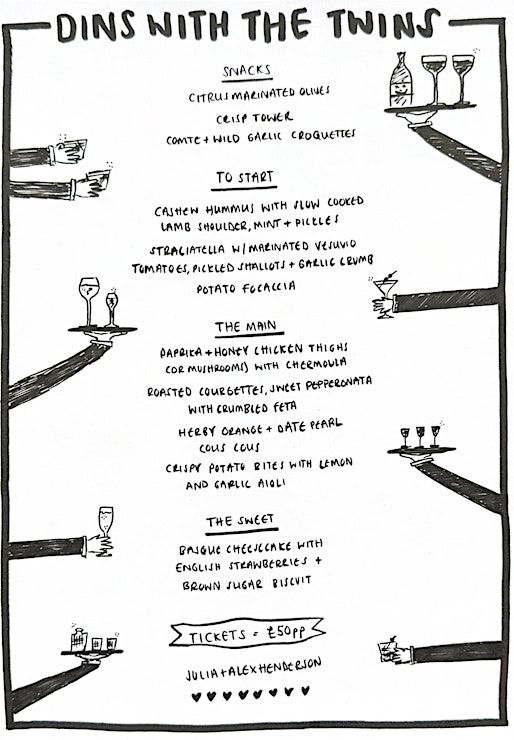 DINS WITH THE TWINS
SNACKS
CITRUS MARINATED OLIVES
CRISP TOWER
COMTE + WILD GARLIC CROQUETTES
TO START
CASHEW HUMMUS WITH SLOW COOKED
LAMB SHOULDER, MINT + PICKLES
STRACIATELLA W/ MARINATED VESUVIO
TOMATOES, PICKLED SHALLOTS + GARLIC CRUMB
POTATO FOCACCIA
THE MAIN
PAPRIKA + HONEY CHICKEN THIGHS
(OR MUSHROOMS) WITH CHERMOULA
ROASTED COURGETTES, SWEET PEPPERONATA
WITH CRUMBLED FETA
HERBY ORANGE + DATE PEARL
COUS COUS
CRISPY POTATO BITES WITH LEMON
AND GARLIC AIOLI
THE SWEET
BASQUE CHEESECAKE WITH
ENGLISH STRAWBERRIES +
BROWN SUGAR BISCUIT
TICKETS = £50PP
JULIA + ALEX HENDERSON